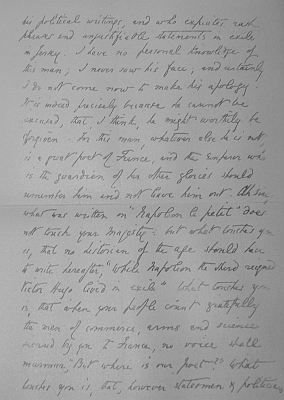 his political writings, and who expiates rash
phrases and unjustifiable statements in exile
in Jersey. I have no personal knowledge of
this man; I never saw his face; and certainly
I do not come now to make his apology.
It is indeed precisely because he cannot be
excused, that I think he might worthily be
forgiven. For this man, whatever else he is not
is a great poet of France, and the Emperor who
is the guardian of her other glories should
remember him and not leave him out. Ah sire,
what was written on "Napoleon le petit" does
not touch your Majesty; but what touches you
is, that no historian of the age should have
to write hereafter, "While Napoleon the third reigned
Victor Hugo lived in exile." What touches you
is, that when your people count gratefully
the men of commerce, arms and science
secured by you to France, no voice shall
murmur, "But where is our poet?" What
touches you is, that, however statesmen & politicians